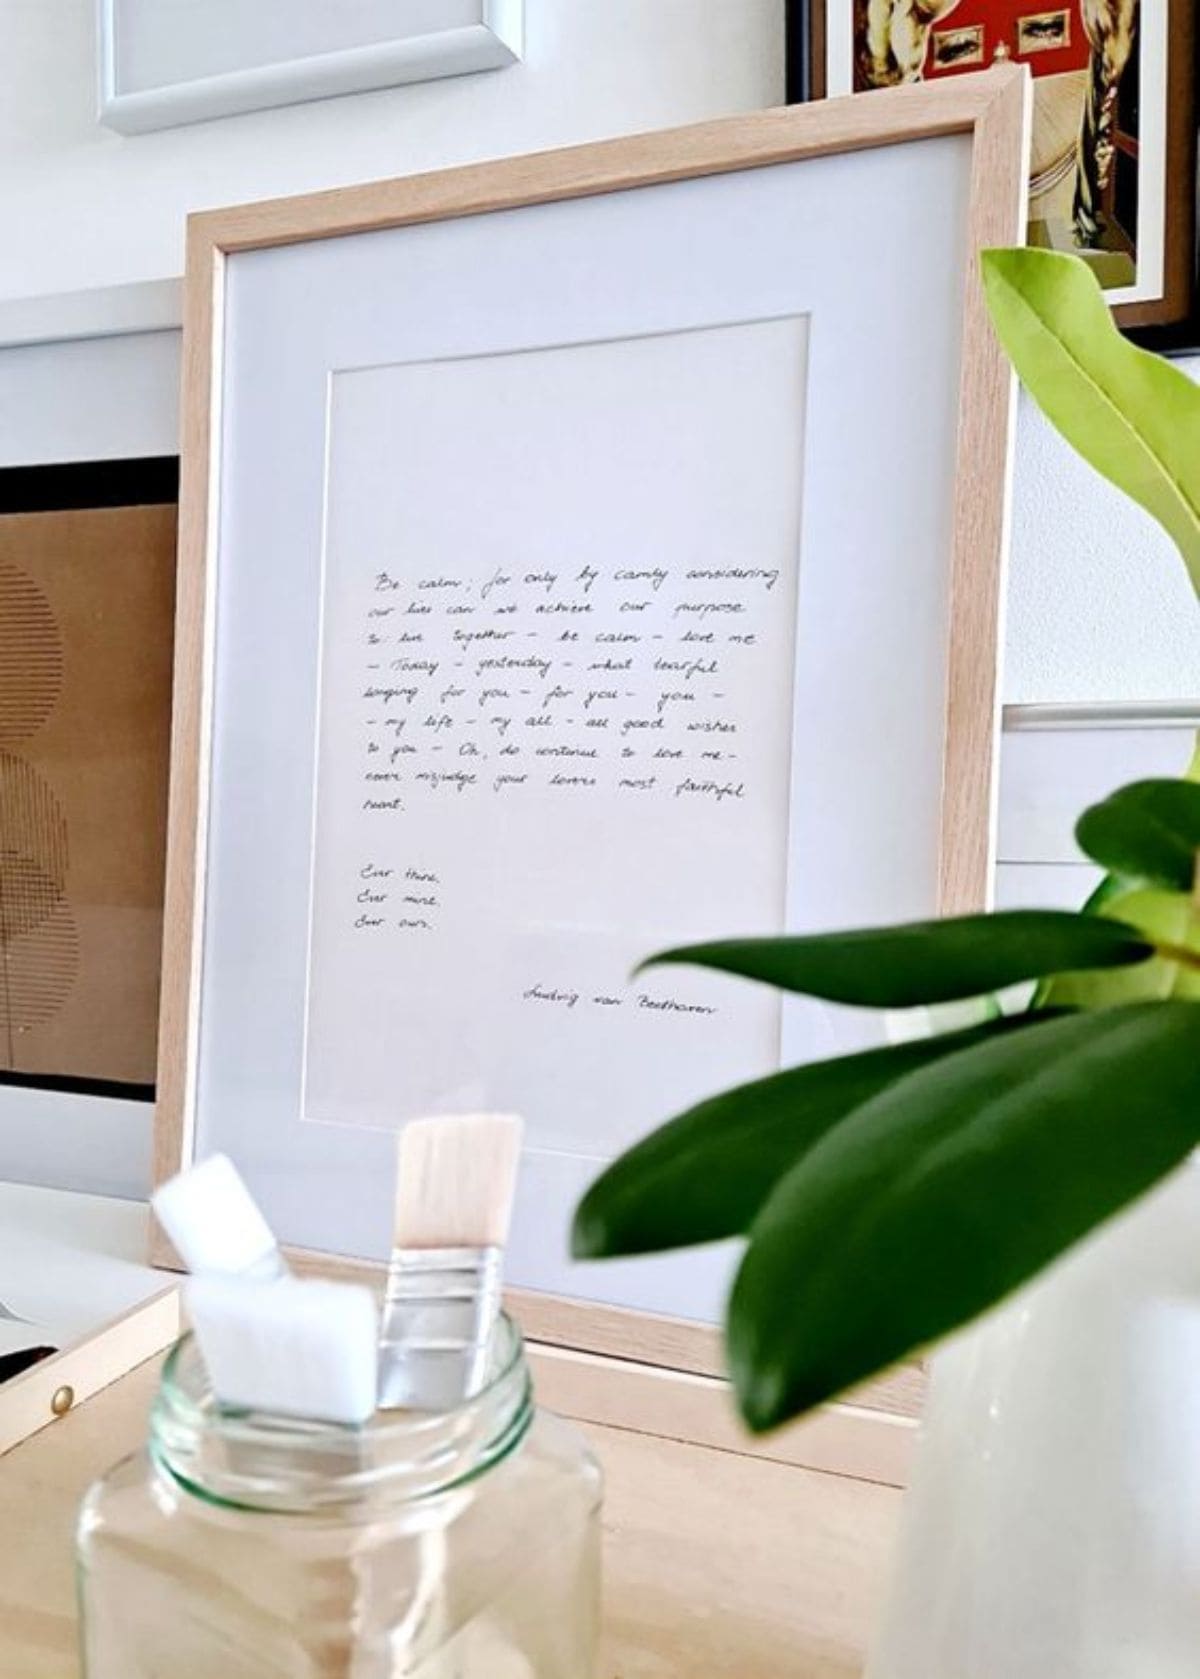 Be calm; for only by camly considering
our lives can we achieve our purpose
to live together - be calm - love me
- Today - yesterday - what tearful
longing for you - for you - you -
- my life - my all - all good wishes
to you - Oh, do continue to love me -
never misjudge your lovers most faithful
heart.
Ever thine.
Ever mine.
Ever ours.
Ludvig van Beethoven